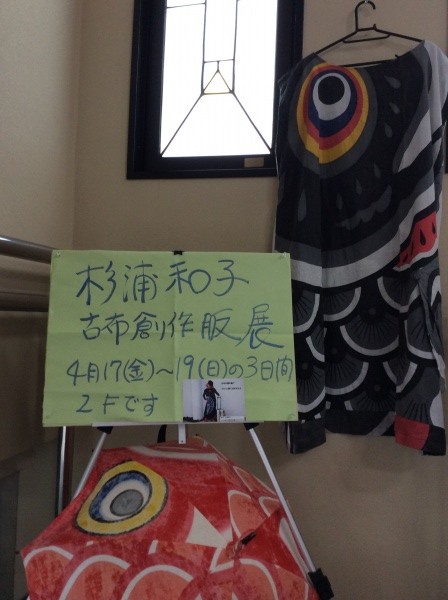 杉浦和子
古布創作服展
4月17(金)～19(日)の3日間
2Fです